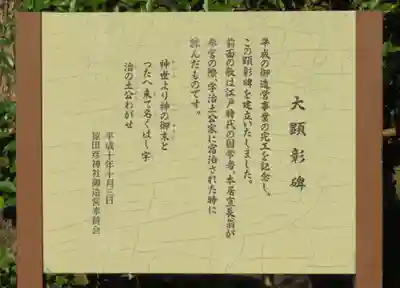 大顕彰碑
平成の御造営事業の完工を記念し、
この顕彰碑を建立いたしました。
前面の歌は江戸時代の国学者、本居宣長翁が
参宮の際、宇治土公家に宿泊された時に
詠んだものです。
神世より神の御末と
つたへ来て名くはし宇
治の土公わがせ
平成十年十月三日
猿田彦神社御造営奉賛会